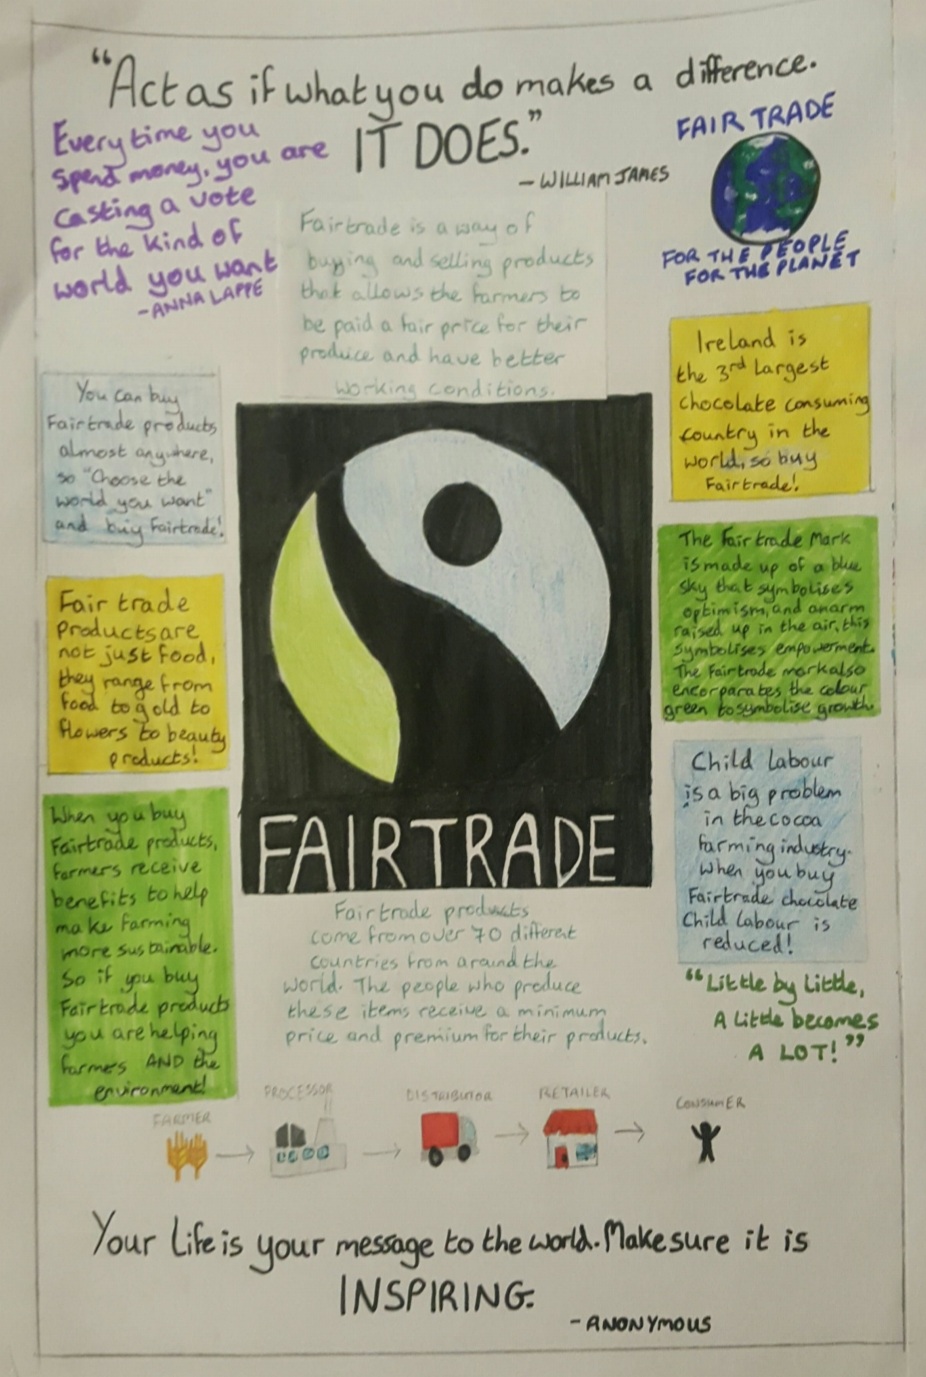 “Act as if what you do makes a difference.
IT DOES.”
- WILLIAM JAMES
Every time you
spend money, you are
casting a vote
for the kind of
world you want
- ANNA LAPPE
FAIR TRADE
FOR THE PEOPLE
FOR THE PLANET
Fairtrade is a way of
buying and selling products
that allows the farmers to
be paid a fair price for their
produce and have better
working conditions.
You can buy
Fairtrade products
almost anywhere,
so "Choose the
world you want"
and buy Fairtrade!
Ireland is
the 3rd largest
chocolate consuming
country in the
world, so buy
Fairtrade!
Fair trade
products are
not just food,
they range from
food to gold to
flowers to beauty
products!
The Fair trade Mark
is made up of a blue
sky that symbolises
optimism, and an arm
raised up in the air, this
symbolises empowerment.
The Fairtrade mark also
encorparates the colour
green to symbolise growth.
When you buy
Fairtrade products,
farmers receive
benefits to help
make farming
more sustainable.
So if you buy
Fairtrade products
you are helping
farmers AND the
environment!
Child labour
is a big problem
in the cocoa
farming industry.
When you buy
Fairtrade chocolate
Child labour is
reduced!
FAIRTRADE
Fairtrade products
come from over 70 different
countries from around the
world. The people who produce
these items receive a minimum
price and premium for their products.
“Little by little,
A little becomes
A LOT!”
FARMER
PROCESSOR
DISTRIBUTOR
RETAILER
CONSUMER
Your life is your message to the world. Make sure it is
INSPIRING.
- ANONYMOUS